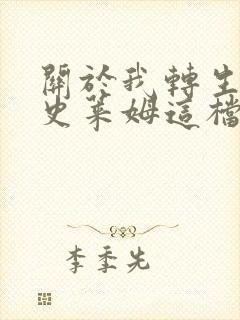 關於我轉生
史萊姆這檔
李季先